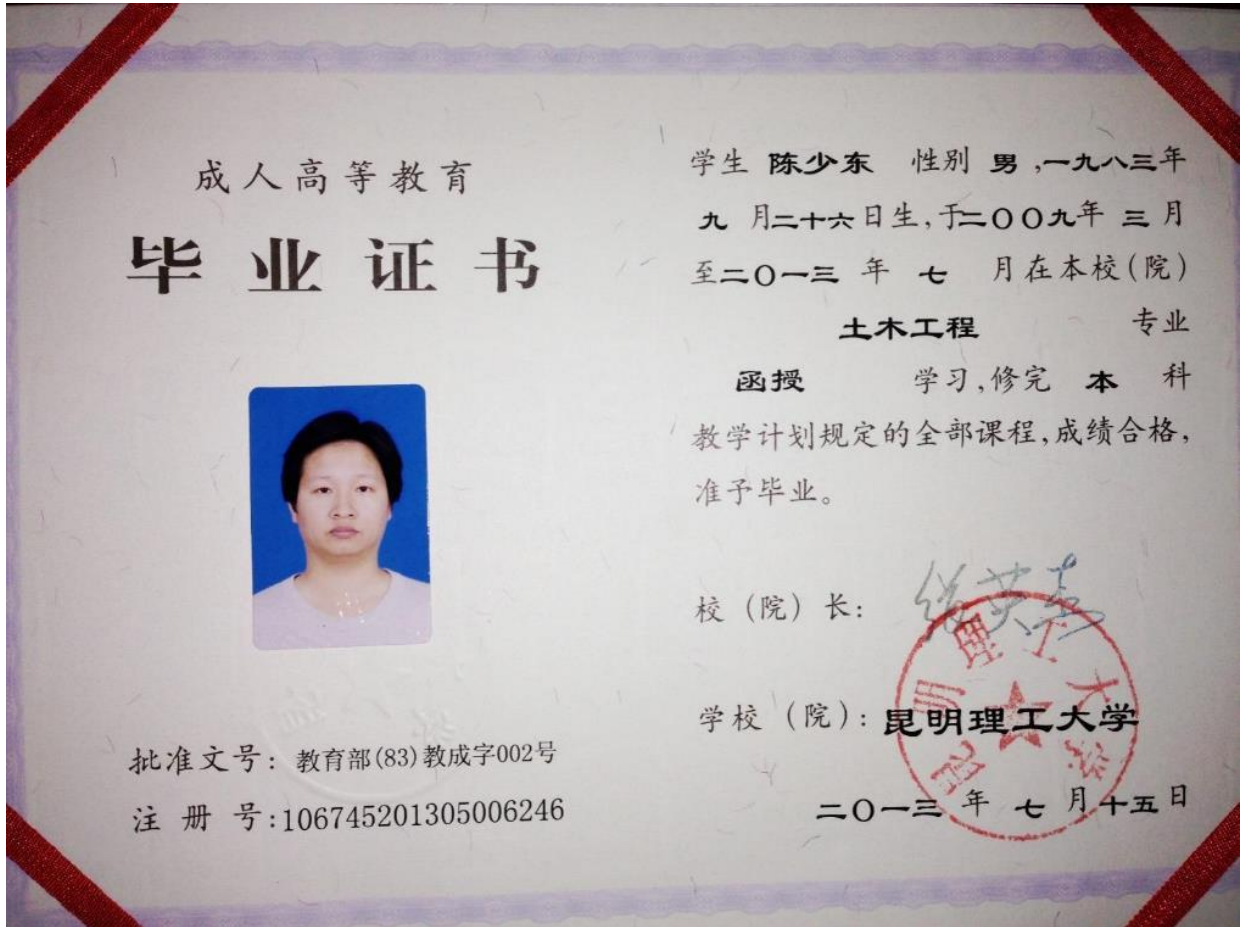 成人高等教育
毕业证书
批准文号：教育部(83)教成字002号
注册号:106745201305006246
学生 陈少东 性别 男,一九八三年
九 月二十六日生,于二〇〇九年 三月
至二〇一三 年 七 月在本校(院)
土木工程 专业
函授 学习,修完 本 科
教学计划规定的全部课程,成绩合格,
准予毕业。
校（院）长：
学校（院）：昆明理工大学
昆明理工大学
二〇一三 年 七 月十五日